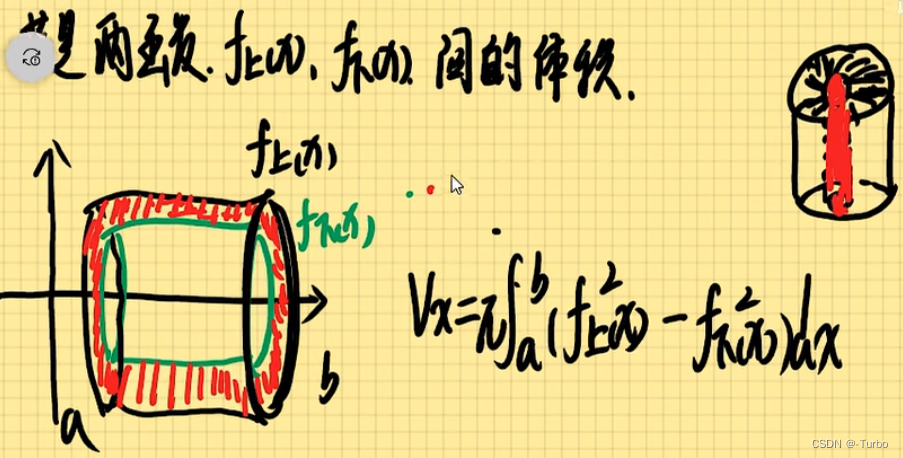 是两函数.f上(x)、f下(x)间的体积.
f上(x)
f下(x)
Vx=π∫ₐᵇ(f上²(x)-f下²(x))dx
b
a
CSDN @-Turbo